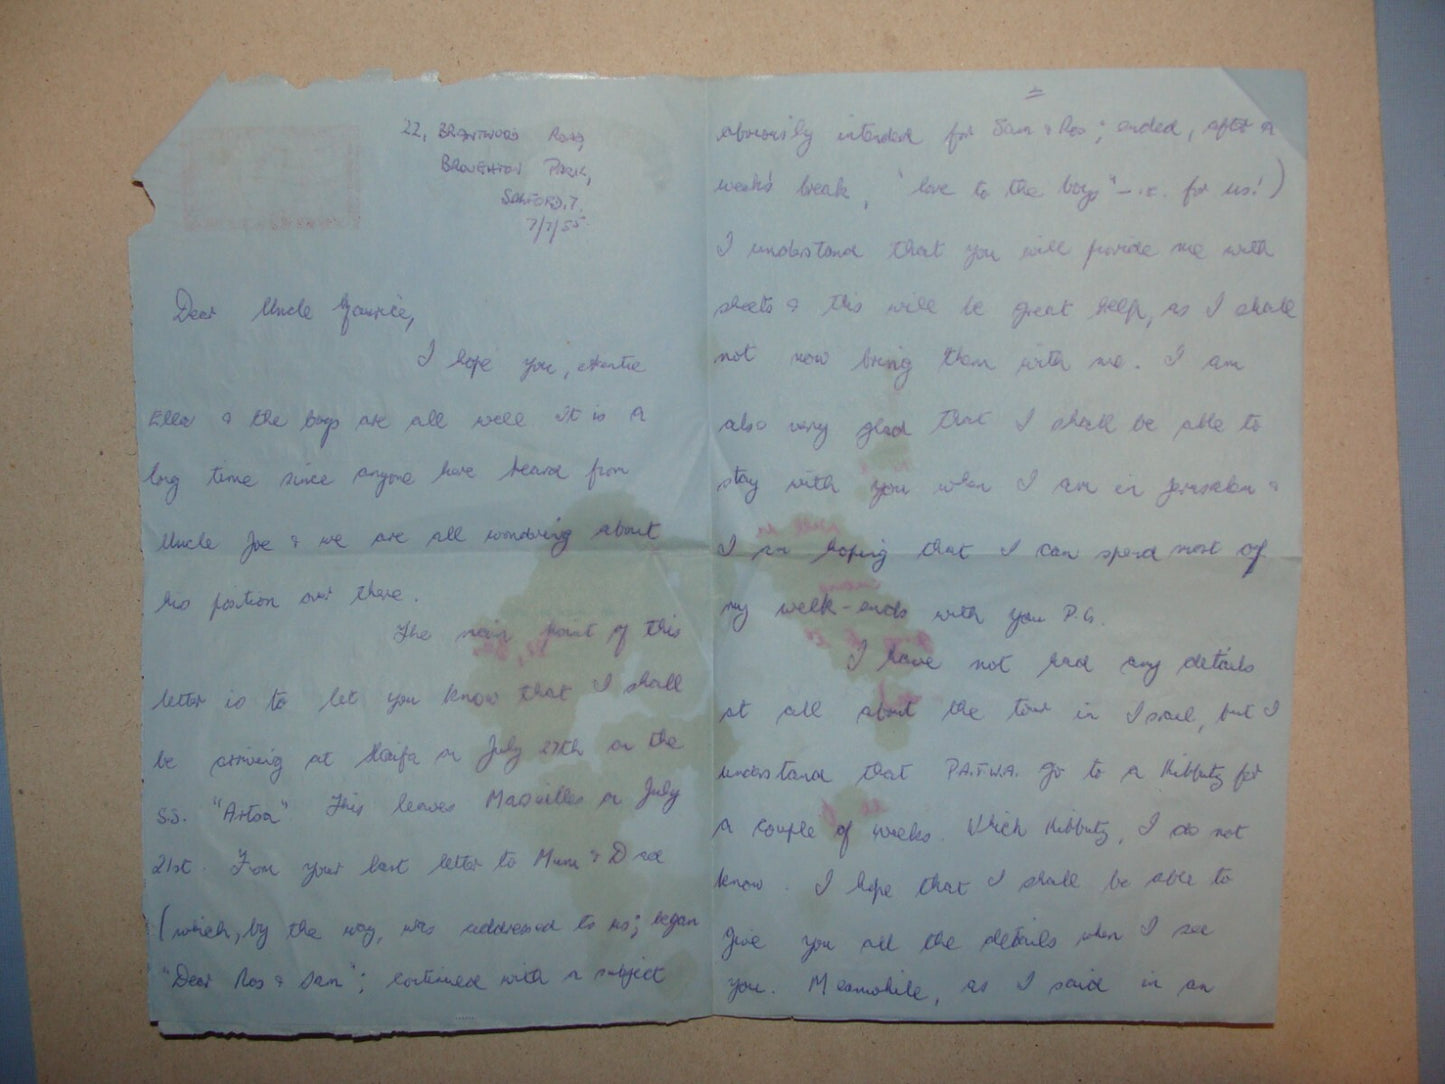 22, BRENTWOOD ROAD,
BROUGHTON PARK,
SALFORD.7.
7/7/55
Dear Uncle Maurice,
I hope you, Auntie
Ella & the boys are all well. It is a
long time since anyone have heard from
Uncle Joe & we are all wondering about
his position out there.
The main point of this
letter is to let you know that I shall
be arriving at Haifa on July 27th on the
S.S. "Artsa". This leaves Marseilles on July
21st. From your last letter to Mum & Dad
(which, by the way, was addressed to us; began
"Dear Ros & Sam"; continued with a subject
obviously intended for Sam & Ros; ended, after a
week's break, "love to the boys" – i.e. for us!)
I understand that you will provide me with
sheets & this will be great help, as I shall
not now bring them with me. I am
also very glad that I shall be able to
stay with you when I am in Jerusalem &
I am hoping that I can spend most of
my week-ends with you P.G.
I have not had any details
at all about the tour in Israel, but I
understand that P.A.T.W.A. go to a Kibbutz for
a couple of weeks. Which Kibbutz, I do not
know. I hope that I shall be able to
give you all the details when I see
you. Meanwhile, as I said in an